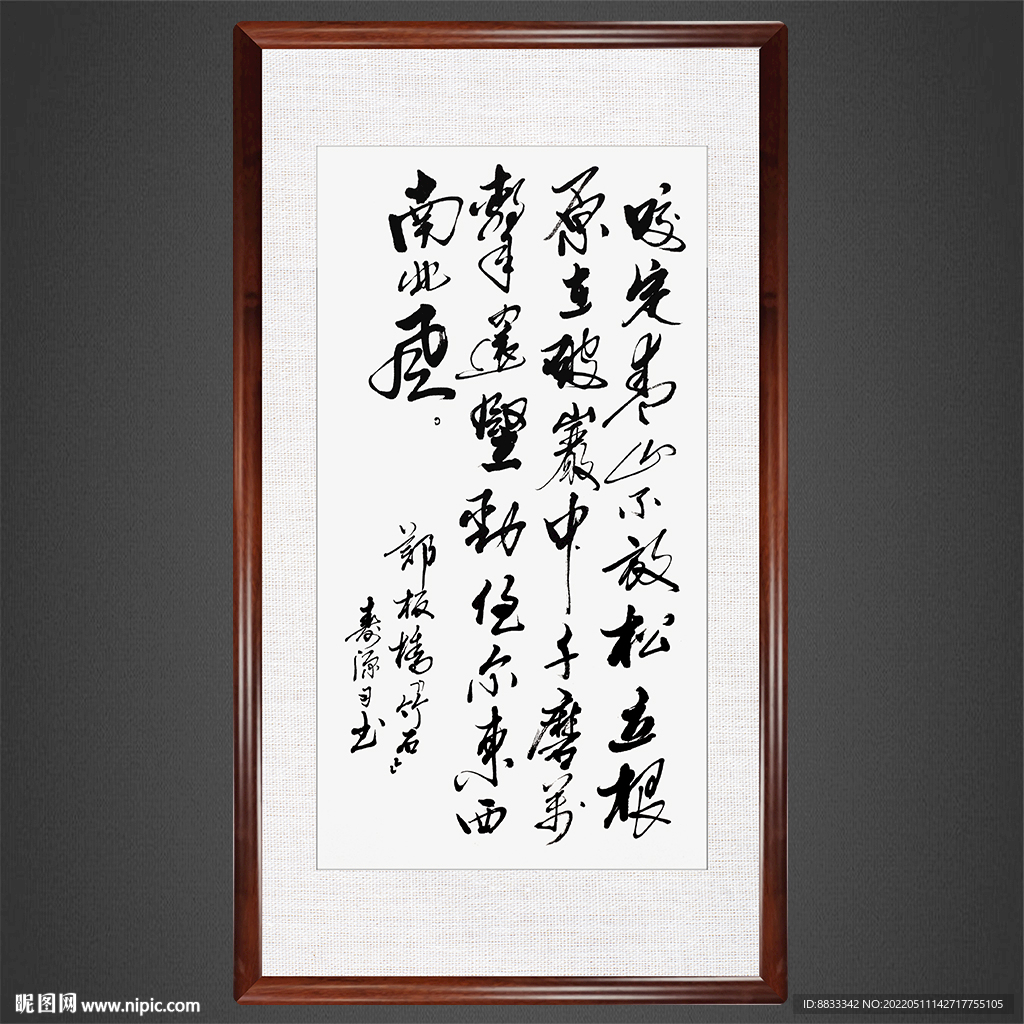 咬定青山不放松立根
原在破巖中千磨萬
擊還堅勁任尔東西
南北風。
鄭板橋竹石
壽源习书
昵图网 www.nipic.com
ID:8833342 NO:20220511142717755105